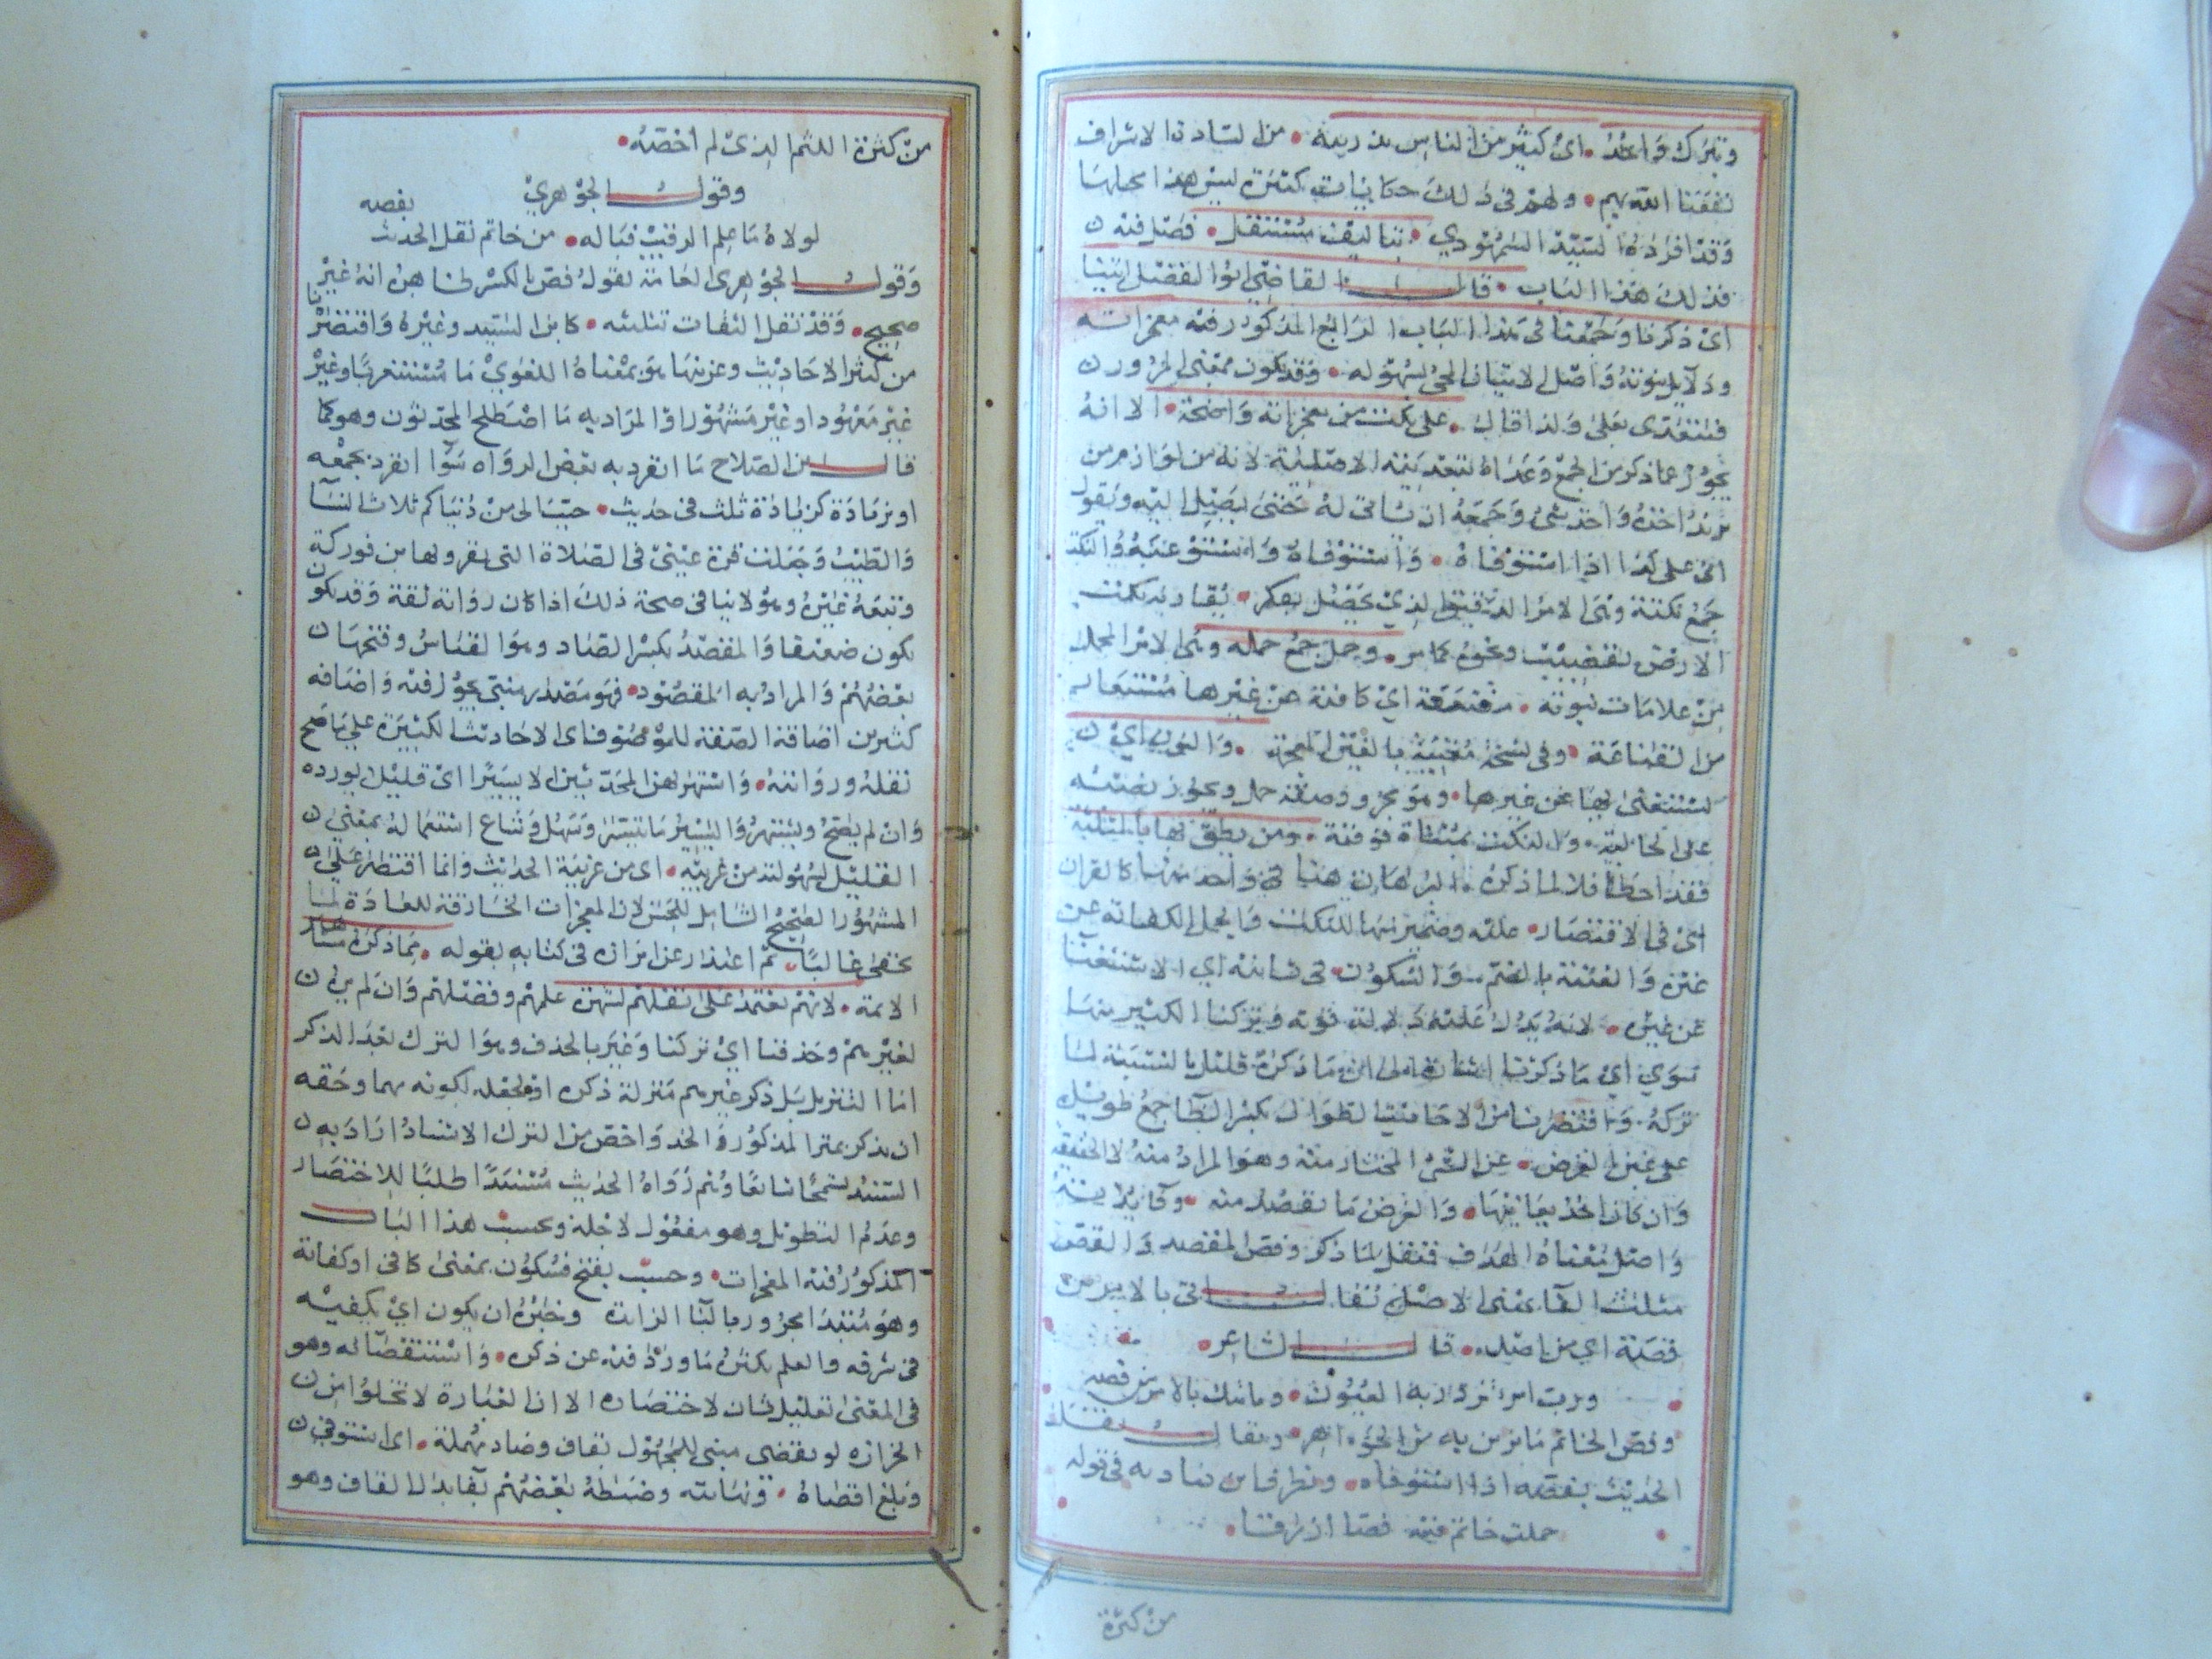 وتبرك واعد • اى كثير من الناس بذريته • من السادة الاشراف
نفعنا الله بهم • ولهم في ذلك حكايات كثيرة ليس هذا محلها
وقد افرده السيد السمهودي • بتاليف مستقل • فصل فيه
في ذلك هذا الباب • قال القاضي ابو الفضل اتينا
اى ذكرنا وجمعنا في هذا الباب الرابع المذكور فيه معجزاته
ودلايل نبوته واصل الاتيان المجئ بسهولة • وقد يكون بمعنى المرور
فيتعدى بعلى ولذا قال • على نكت من معجزاته واضحة • الا انه
يجوز عما ذكر من الجمع وعداه لتعديته الاصلية لانه من لوازم من
يريد اخذه واخذ شئ وجمعه ان ياتي له حتى يصل اليه ويقول
اتى على كذا اذا استوفاه • واستوفاه واستوعبه والنكت
جمع نكتة وهى الامر الدقيق الذي يحصل بفكر • يقارنه نكت
الارض بقضيب ونحوه كما مر • وجمل جمع جمله وهى الامر المجمل
من علامات نبوته • مقنعة اي كافية عن غيرها مستعار
من القناعة • وفى نسخة مغنية بالغين المعجمة • والنون اي
يستغنى بها عن غيرها • وهو مجرور وصفة جمل ويجوز نصبه
على الحالية • والنكت بمثناة فوقية • ومن نطق بها بالمثلثة
فقد اخطا فلا لما ذكره • البرهان هنا في واحد منها كالقران
اى في الاقتصار • عليه وضمير منها للنكت والجمل الكفاية عن
غيره والغنية بالضم والسكون • في شانه اي الاستغنا
عن غيره • لانه يدل عليه دلالة قوية وتركنا الكثير منها
سوي اي ما ذكرنا اشارة الى ان ما ذكره قليل بالنسبة لما
تركه • واقتصرنا من الاحاديث الطوال بكسر الطا جمع طويل
على عين الغرض • عن الشئ المختار منه وهو المراد منه لا الحقيقه
وان كان اخذ بمعاينها • والغرض ما يقصد منه
واصل معناه الهدف فنقل لما ذكر وفص المقصد والفص
مثلث الفا بمعنى الاصل يقال اتى بالامر من
فصه اي من اصله • قال الشاعر •
ورب امرئ تزدريه العيون • وياتيك بالامر من فصه
وفص الخاتم ما يزين به من الجواهر • ويقال نقلت
الحديث بفصه اذا استوفاه • ونظر فا بن نباته في قوله
حملت خاتم فيه فصا ازرقا •
من كثرة
من كثرة اللثم الذى لم احصه •
وقول الجوهري
لولاه ما علم الرقيب فياله • من خاتم نقل الحديث بفصه
وقول الجوهرى العامة تقول فص بالكسر ظاهره انه غير
صحيح • وقد نقل الثقات تثليثه • كابن السيد وغيره واقتصرنا
من كثير الاحاديث وغريبها هو بمعناه اللغوي ما يستغرب او غير
غير معهود او غير مشهور او المراد به ما اصطلح المحدثون وهو كما
قال بن الصلاح ما انفرد به بعض الرواه سوآ انفرد بجمعه
او بزيادة كزيادة ثلث فى حديث • حبب الى من دنياكم ثلاث النسا
والطيب وجعلت قرة عينى في الصلاة التى بفرد بها بن فورك
وتبعه غيره وهو لا ينافى صحة ذلك اذا كان رواته ثقة وقد يكون
يكون ضعيفا والمقصد بكسر الصاد وهو القياس وفتحها
بعضهم والمراد به المقصود • فهو مصدر ميمى يجوز فيه واضافه
كثير من اضافة الصفة للموصوف اى الاحاديث الكثيرة على ما صح
نقله ورواته • واشتهر لهذا المحدثين الا يسيرا اى قليل يورده
وان لم يصح ويشتهر واليسير ما تيسر وسهل وشاع استعماله بمعنى
القليل لسهولته من غريبه • اى من غريبة الحديث وانما اقتصر على
المشهور الصحيح الشامل للحسن لان المعجزات الخارقة للعادة لا
تخفى غالبًا ثم اعتذار عن ايراده فى كتابه بقوله • مما ذكره مشاهير
الايمة • لانهم يعتمد على نقلهم لشهرة علمهم وفضلهم وان لم يكن
لغيرهم وحذفنا اي تركنا وغير بالحذف وهو الترك بعد الذكر
اما التنزيل بل ذكر غيرهم منزلة ذكره او لجعله لكونه مهما وحقه
ان يذكر بمتر المذكورة الحد واخص من الترك الاسناد اراد به
السند تسمحا شايعا وثم رواه الحديث مسندًا طلبًا للاختصار
وعدم التطويل وهو مفعول لاجله وبحسب هذا الباب
المذكور فيه المعجزات • وحسب بفتح فسكون بمعنى كافى او كفاية
وهو مبتدا مجرور بالبا الزايدة وخبره ان يكون اي يكفيه
فى شرفه والعلم بكثرة ما ورد فيه عن ذكره • واستقصائه وهو
فى المعنى تعليل شان لاختصاره الا ان العبارة لا تخلوا من
الحزازه لو تقصى مبنى للمجهول بقاف وصاد مهملة • اى استوفى
وبلغ اقصاه • ونهايته وضبطه بعضهم بفا بدل القاف وهو